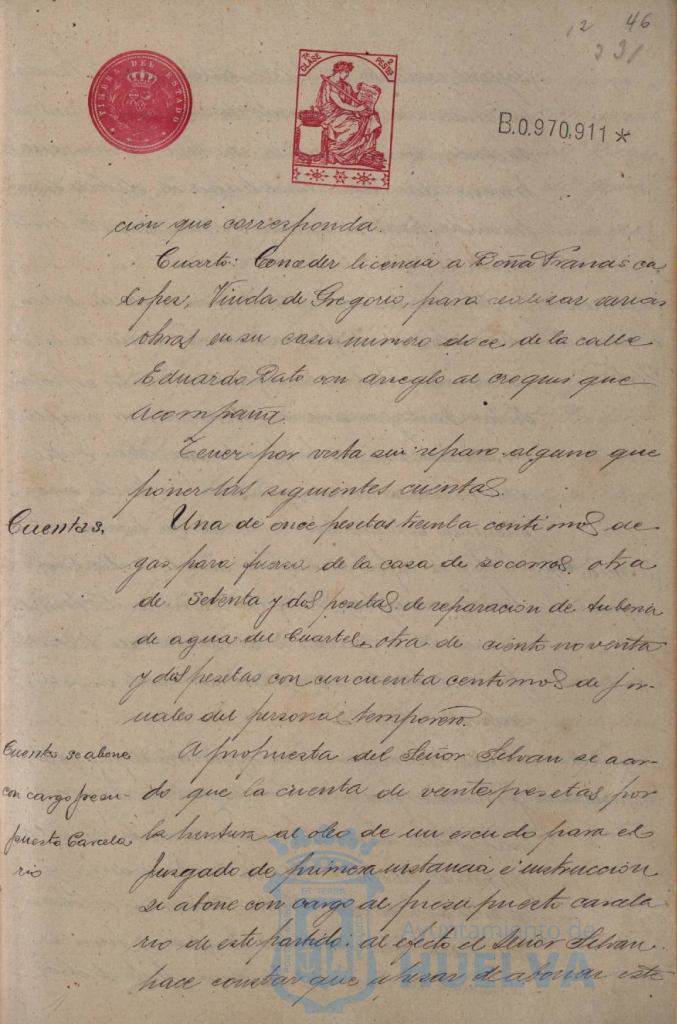 12 46
331
TIMBRE DEL ESTADO
7ª CLASE 2 PESTAS
B.0.970.911 *
cion que corresponda.
Cuarto: Conceder licencia a Doña Francisca
Lopez, Viuda de Gregorio, para realizar varias
obras en su casa numero doce de la calle
Eduardo Dato con arreglo al croquis que
acompaña.
Tener por vista sin reparo alguno que
poner las siguientes cuentas.
Cuentas.
Una de once pesetas treinta centimos de
gas para fuerza de la casa de socorros, otra
de setenta y dos pesetas de reparación de tuberia
de agua del Cuartel, otra de ciento noventa
y dos pesetas con cincuenta centimos de jor-
nales del personal temporero.
Cuenta se abone
con cargo presu-
puesto Carcela
rio
A propuesta del Señor Selvan se acor-
do que la cuenta de veinte pesetas por
la pintura al oleo de un escudo para el
Juzgado de primera instancia é instrucción
se abone con cargo al presupuesto carcela
rio de este partido: al efecto el Señor Selvan
hace constar que a pesar de abonar este
Ayuntamiento de
HUELVA